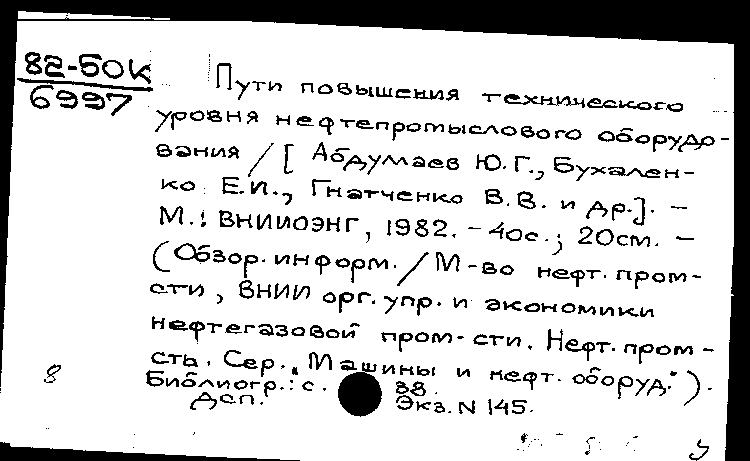 82-5ОК
6997
Пути повышения технического
уровня нефтепромыслового оборудо-
вания / [Абдумаев Ю.Г., Бухален-
ко Е.И., Гнатченко В.В. и др.]. –
М.: ВНИИОЭНГ, 1982. – 40с.; 20см. –
(Обзор. информ. / М-во нефт. пром-
сти, ВНИИ орг. упр. и экономики
нефтегазовой пром-сти. Нефт. пром-
сть. Сер. „Машины и нефт. оборуд.").
8
Библиогр.: с. 38.
Дсп. Экз. N 145.